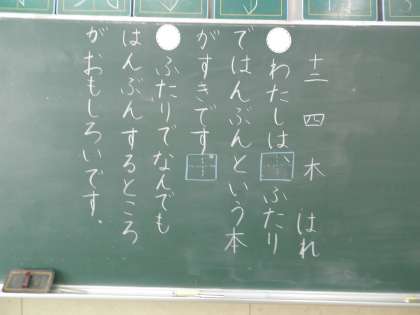 十二 四 木 はれ
わたしは、ふたり
ではんぶんという本
がすきです。
ふたりでなんでも
はんぶんするところ
がおもしろいです。